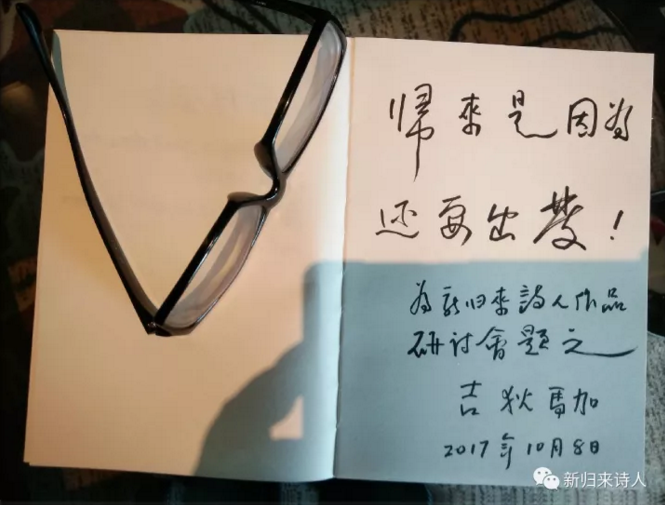 歸來是因为
还要出發！
为新归来詩人作品
研讨會題之
吉狄馬加
2017年10月8日
新归来诗人